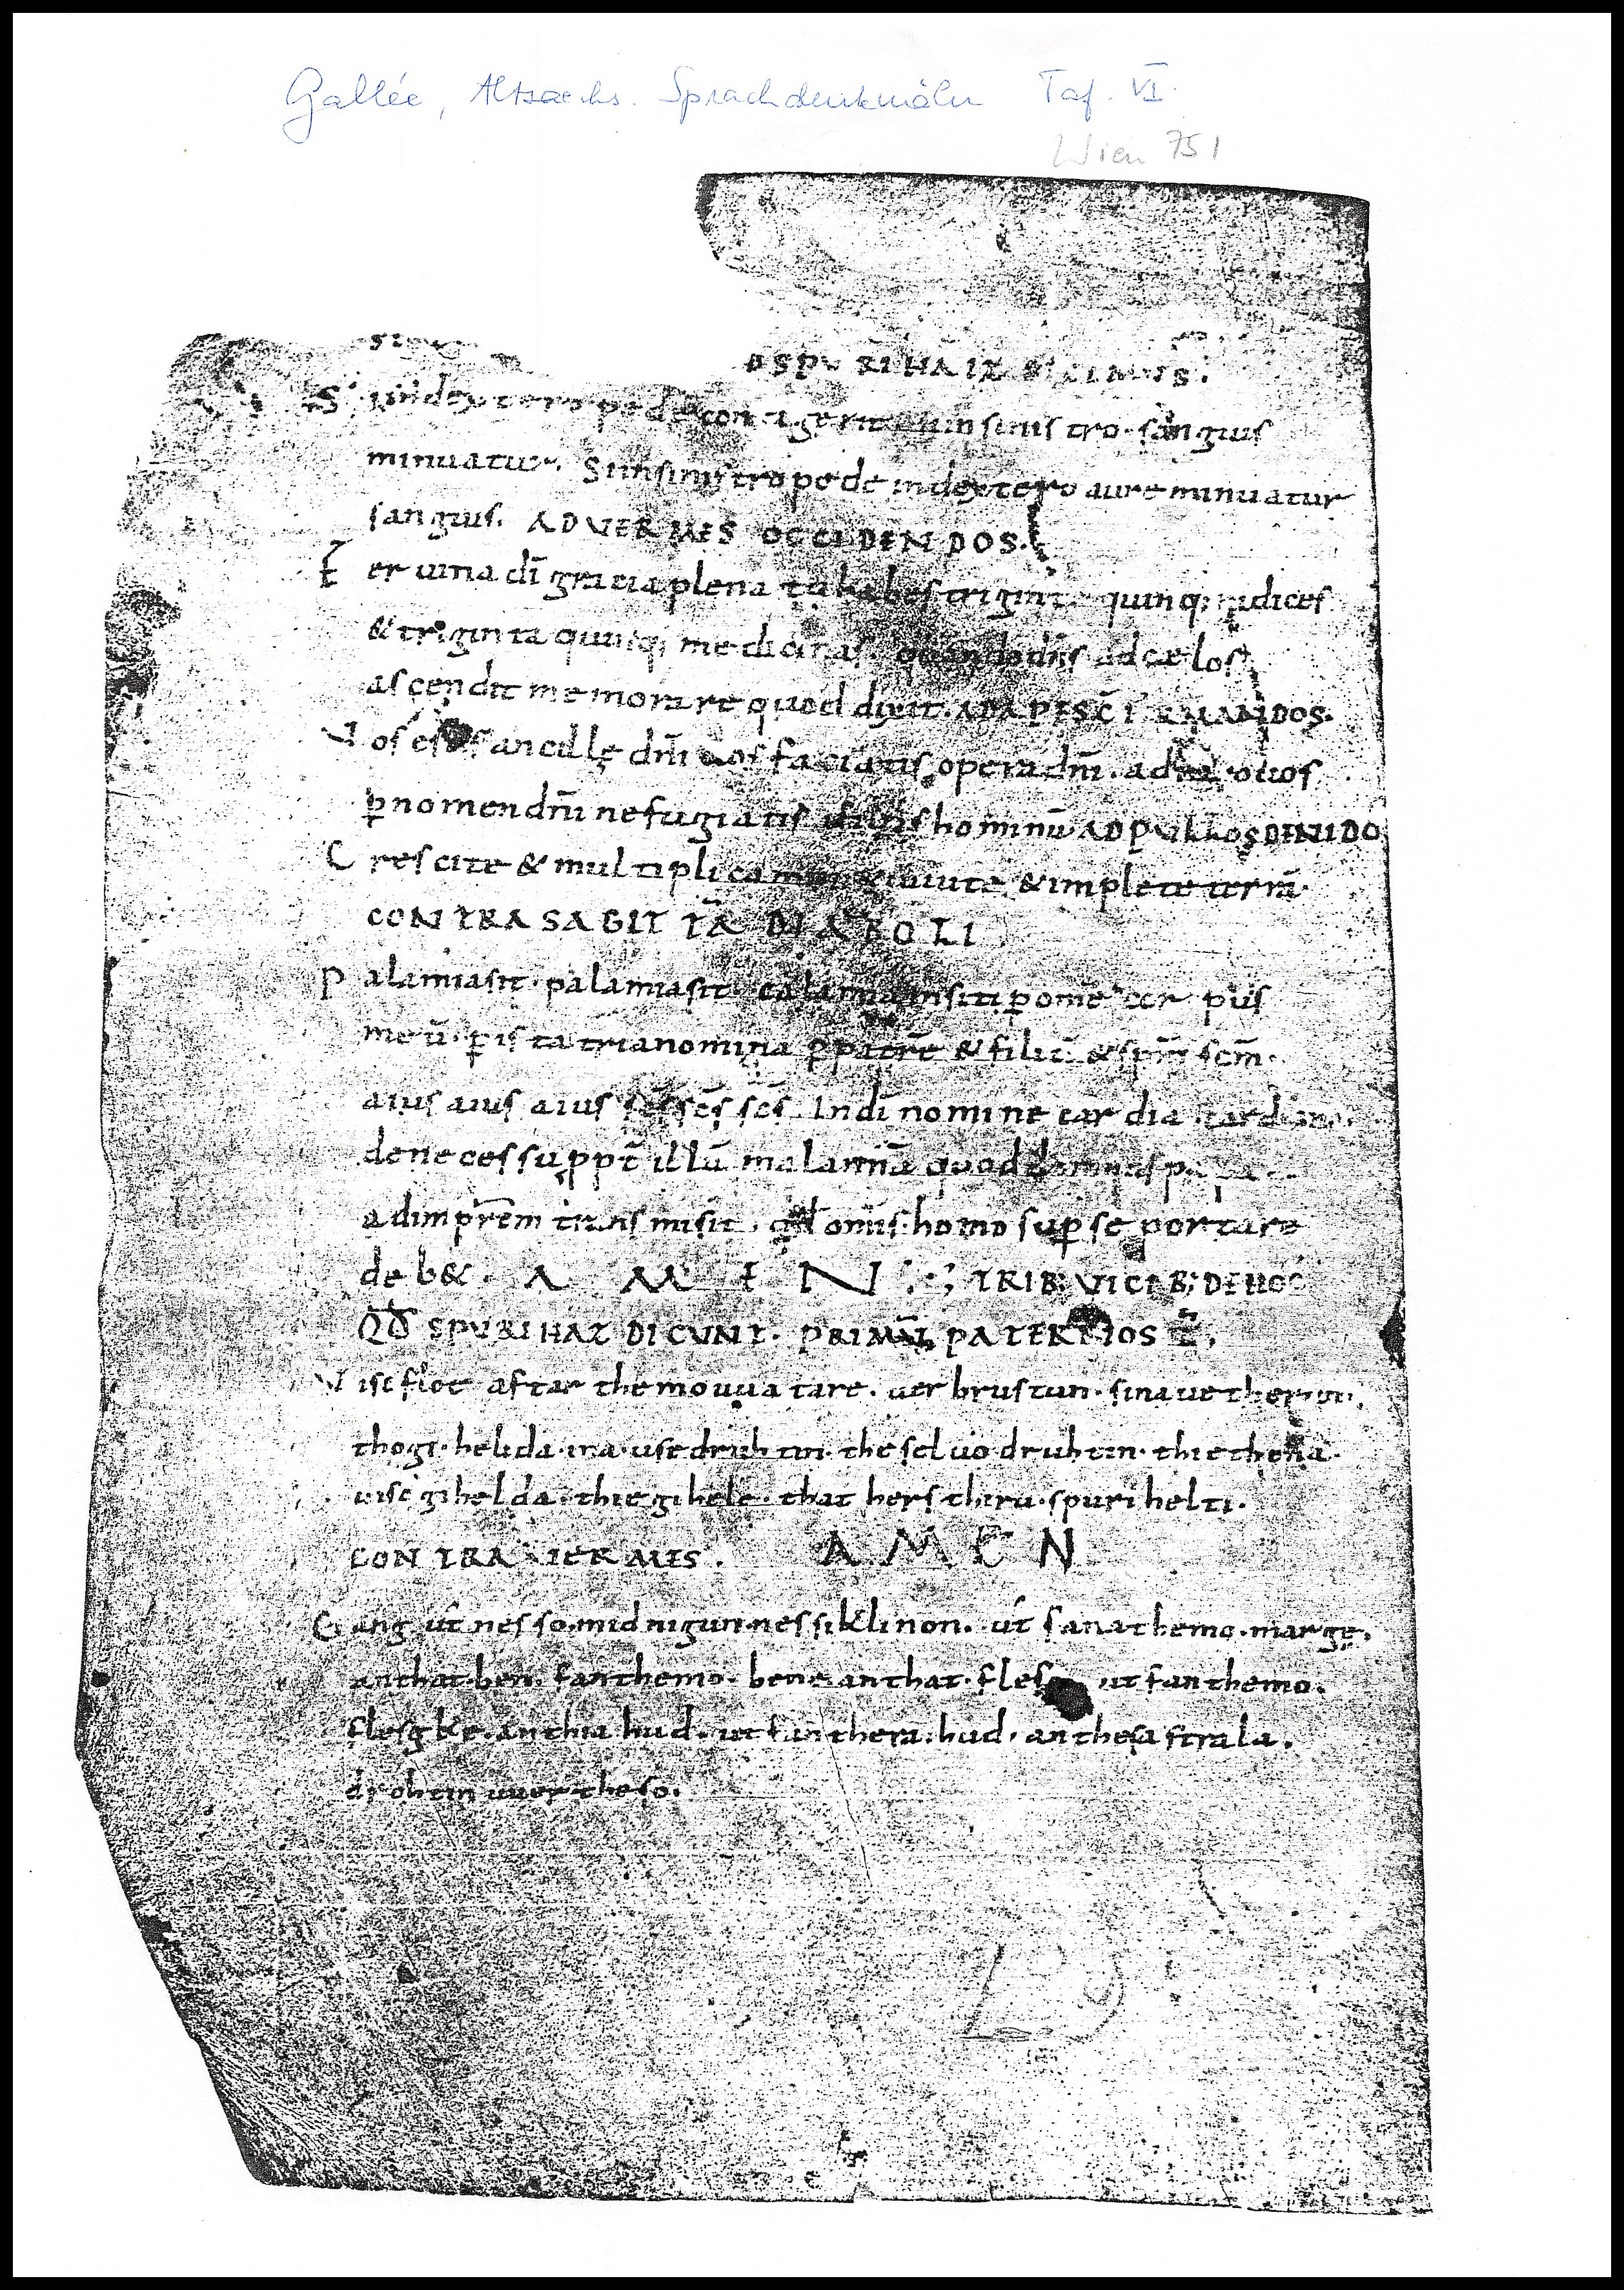 Gallée, Altsaechs. Sprachdenkmäler Taf. VI.
Wien 751
SPURIHAIZ DICIMUS.
Si in dextero pede contigerit in sinistro sanguis
minuatur. Si in sinistro pede in dextero aure minuatur
sanguis. AD VERMES OCCIDENDOS.
Fer uina dī gracia plena tu habes triginta quinq; indices
& triginta quinq; medicinas. quando dn̄s ad cælos
ascendit memorare quod dixit. AD APES CŌFIRMANDOS.
Vos estis ancille dn̄i uos faciatis opera dn̄i. adiuro uos
p nomen dn̄i ne fugiatis hominū AD PULLOS DE NIDO
Crescite & multiplicamini & uiuite & implete terrā.
CONTRA SAGITTĀ DIABOLI
Palamiasit. palamiasit. calamia insiti p omē cor pus
meū. p ista tria nomina p patrē & filiū & sp̄m sc̄m.
aius aius aius sc̄s sc̄s sc̄s. In dī nomine cardia cardiani
de necessu ppt̄ illū malannū quod domnus papa
ad imp̄rem transmisit. qd omnis homo sup se portare
deb&. A M E N :·; TRIB; VICIB;
QĐ SPURIHAZ DICUNT. PRIMŪ PATER NOS T̄,
Visc flot aftar themo uuatare. uerbrustun. sina uetherun.
tho gihelida. ina. use druhtin. the seluo druhtin. thie thena
uisc gihelda. thie gihele. that hers theru. spurihelti.
CONTRA VERMES. A M E N
Gang ūt nesso. mid nigun. nessiklinon. ūt fana themo. marge,
an that. ben. fan themo. bene. an that. flesg ut fan themo.
flesgke. an thia hud. ut fan thera. hud. an thesa strala.
drohtin uuerthe so.